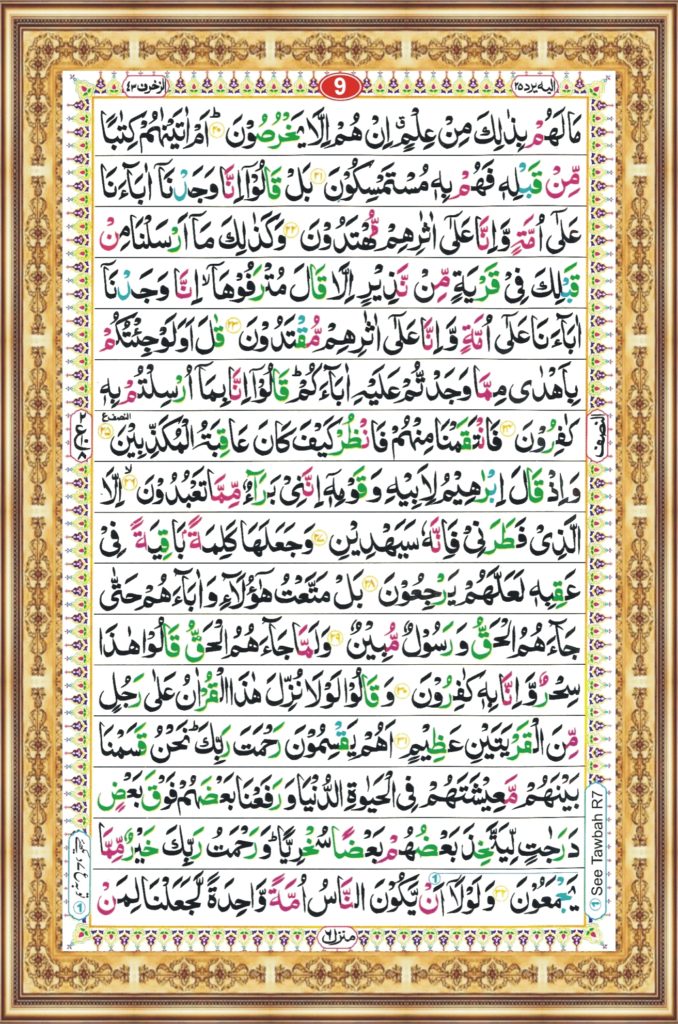 الیه یرد ۲۵
9
الزخرف ۴۳
مَا لَهُمْ بِذٰلِكَ مِنْ عِلْمٍ ۗ اِنْ هُمْ اِلَّا یَخْرُصُوْنَ ۲۰ اَمْ اٰتَیْنٰهُمْ كِتٰبًا
مِّنْ قَبْلِهٖ فَهُمْ بِهٖ مُسْتَمْسِكُوْنَ ۲۱ بَلْ قَالُوْۤا اِنَّا وَجَدْنَاۤ اٰبَآءَنَا
عَلٰۤی اُمَّةٍ وَّاِنَّا عَلٰۤی اٰثٰرِهِمْ مُّهْتَدُوْنَ ۲۲ وَكَذٰلِكَ مَاۤ اَرْسَلْنَا مِنْ
قَبْلِكَ فِیْ قَرْیَةٍ مِّنْ نَّذِیْرٍ اِلَّا قَالَ مُتْرَفُوْهَاۤ ۙ اِنَّا وَجَدْنَاۤ
اٰبَآءَنَا عَلٰۤی اُمَّةٍ وَّاِنَّا عَلٰۤی اٰثٰرِهِمْ مُّقْتَدُوْنَ ۲۳ قٰلَ اَوَلَوْ جِئْتُكُمْ
بِاَهْدٰی مِمَّا وَجَدْتُّمْ عَلَیْهِ اٰبَآءَكُمْ ؕ قَالُوْۤا اِنَّا بِمَاۤ اُرْسِلْتُمْ بِهٖ
كٰفِرُوْنَ ۲۴ فَانْتَقَمْنَا مِنْهُمْ فَانْظُرْ كَیْفَ كَانَ عَاقِبَةُ الْمُكَذِّبِیْنَ ۲۵
وَاِذْ قَالَ اِبْرٰهِیْمُ لِاَبِیْهِ وَقَوْمِهٖۤ اِنَّنِیْ بَرَآءٌ مِّمَّا تَعْبُدُوْنَ ۲۶ ۙ اِلَّا
الَّذِیْ فَطَرَنِیْ فَاِنَّهٗ سَیَهْدِیْنِ ۲۷ وَجَعَلَهَا كَلِمَةًۢ بَاقِیَةً فِیْ
عَقِبِهٖ لَعَلَّهُمْ یَرْجِعُوْنَ ۲۸ بَلْ مَتَّعْتُ هٰۤؤُلَآءِ وَاٰبَآءَهُمْ حَتّٰی
جَآءَهُمُ الْحَقُّ وَرَسُوْلٌ مُّبِیْنٌ ۲۹ وَلَمَّا جَآءَهُمُ الْحَقُّ قَالُوْا هٰذَا
سِحْرٌ وَّاِنَّا بِهٖ كٰفِرُوْنَ ۳۰ وَقَالُوْا لَوْلَا نُزِّلَ هٰذَا الْقُرْاٰنُ عَلٰی رَجُلٍ
مِّنَ الْقَرْیَتَیْنِ عَظِیْمٍ ۳۱ اَهُمْ یَقْسِمُوْنَ رَحْمَتَ رَبِّكَ ؕ نَحْنُ قَسَمْنَا
بَیْنَهُمْ مَّعِیْشَتَهُمْ فِی الْحَیٰوةِ الدُّنْیَا وَرَفَعْنَا بَعْضَهُمْ فَوْقَ بَعْضٍ
دَرَجٰتٍ لِّیَتَّخِذَ بَعْضُهُمْ بَعْضًا سُخْرِیًّا ؕ وَرَحْمَتُ رَبِّكَ خَیْرٌ مِّمَّا
یَجْمَعُوْنَ ۳۲ وَلَوْلَاۤ اَنْ ① یَّكُوْنَ النَّاسُ اُمَّةً وَّاحِدَةً لَّجَعَلْنَا لِمَنْ
النصف
① See Tawbah R7
منزل ۶